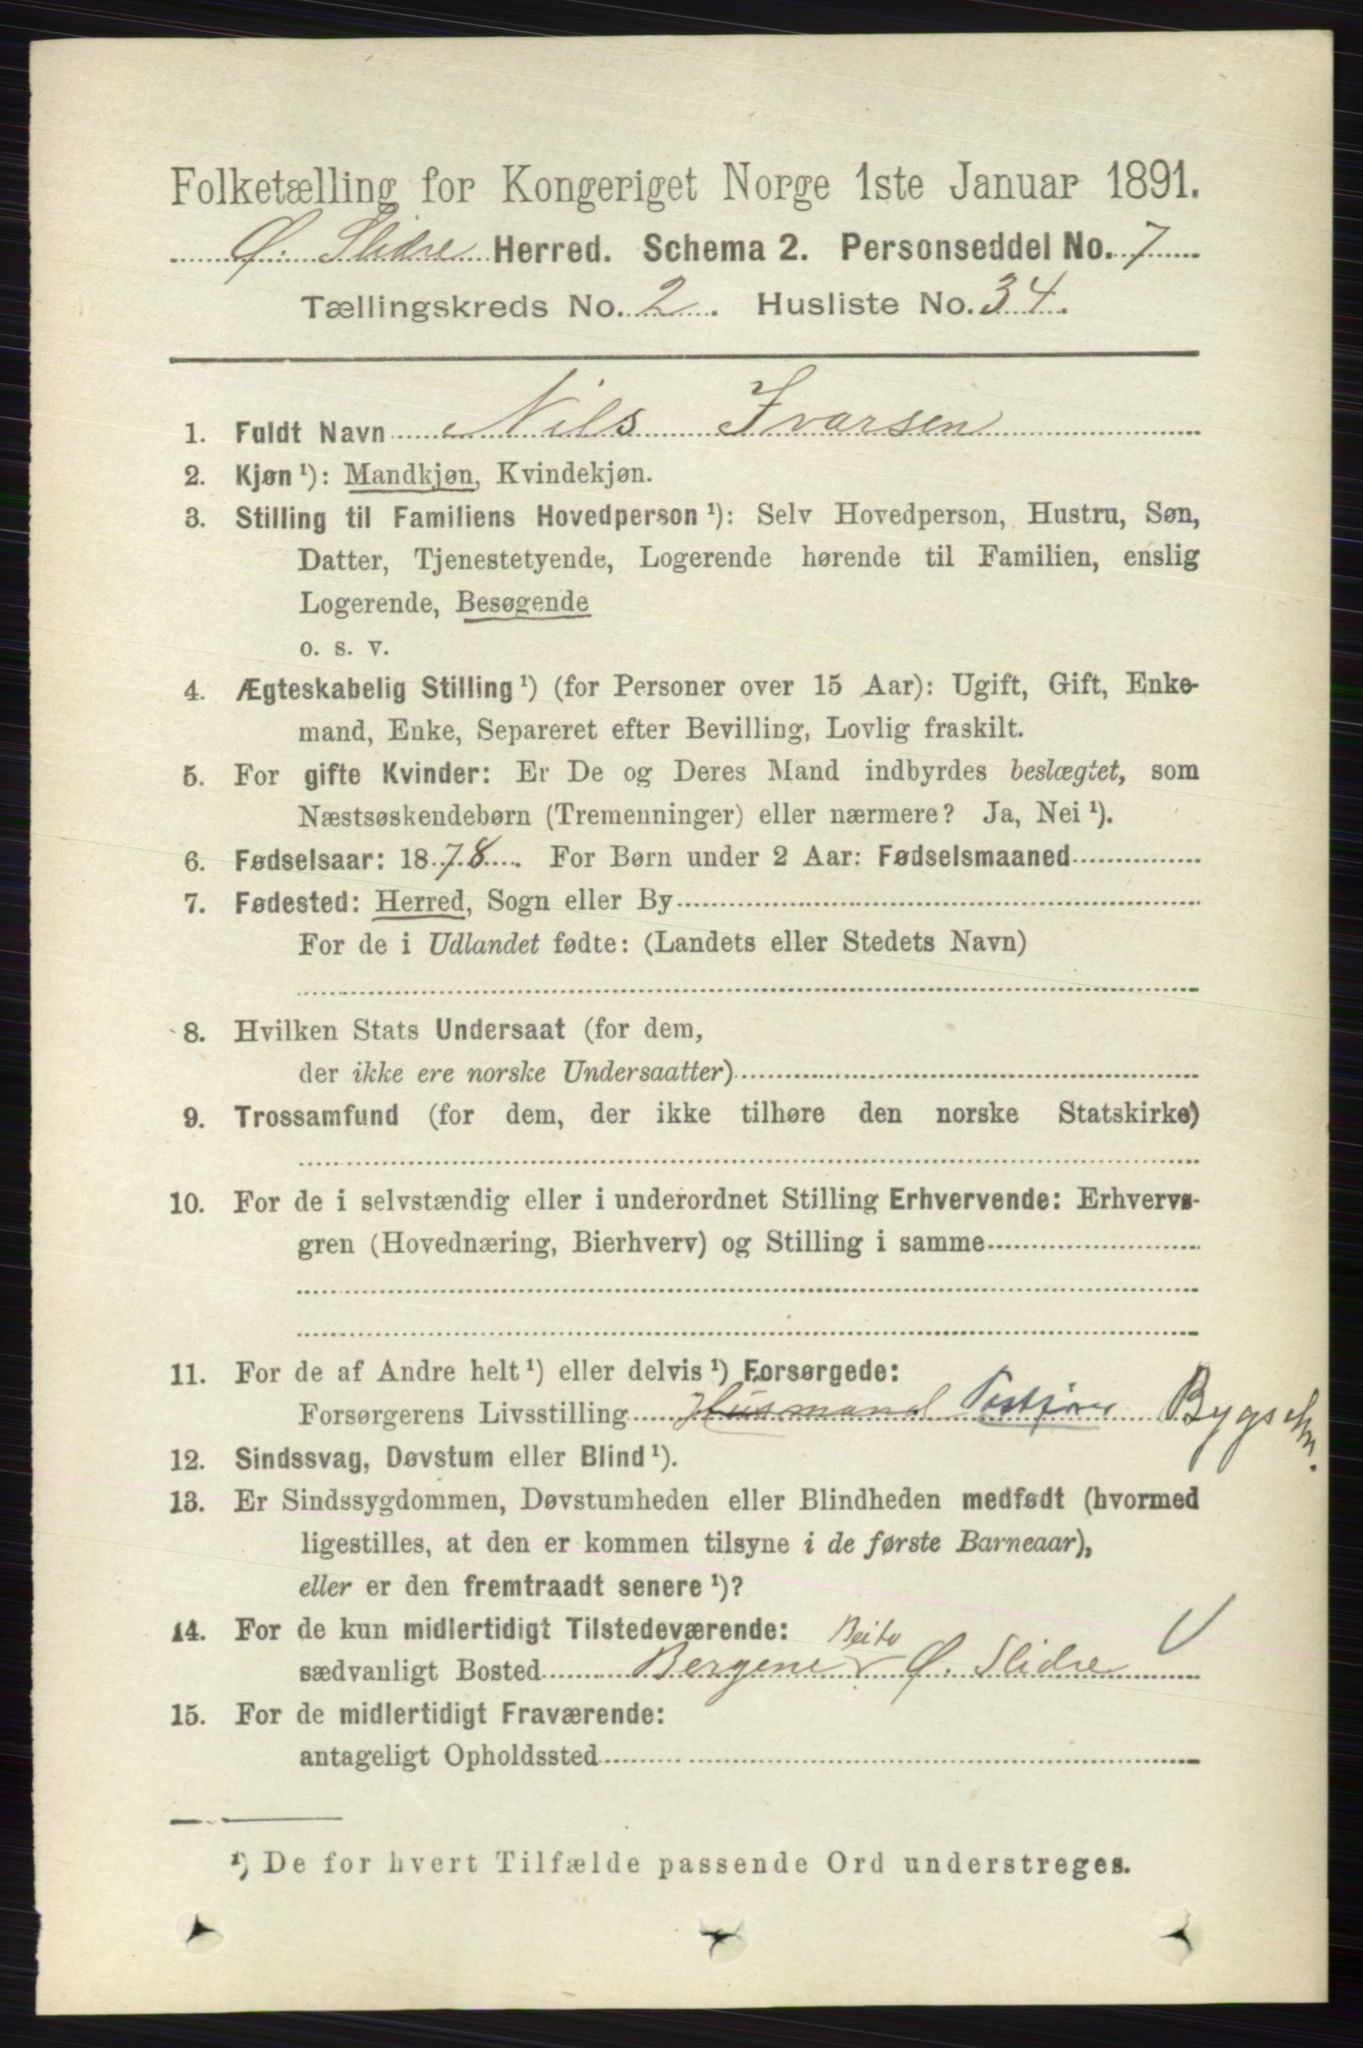 Folketælling for Kongeriget Norge 1ste Januar 1891.
Ø. Slidre Herred. Schema 2. Personseddel No. 7
Tællingskreds No. 2. Husliste No. 34.
1. Fuldt Navn Nils Ivarsen
2. Kjøn¹): Mandkjøn, Kvindekjøn.
3. Stilling til Familiens Hovedperson¹): Selv Hovedperson, Hustru, Søn,
Datter, Tjenestetyende, Logerende hørende til Familien, enslig
Logerende, Besøgende
o. s. v.
4. Ægteskabelig Stilling¹) (for Personer over 15 Aar): Ugift, Gift, Enke-
mand, Enke, Separeret efter Bevilling, Lovlig fraskilt.
5. For gifte Kvinder: Er De og Deres Mand indbyrdes beslægtet, som
Næstsøskendebørn (Tremenninger) eller nærmere? Ja, Nei¹).
6. Fødselsaar: 1878. For Børn under 2 Aar: Fødselsmaaned
7. Fødested: Herred, Sogn eller By
For de i Udlandet fødte: (Landets eller Stedets Navn)
8. Hvilken Stats Undersaat (for dem,
der ikke ere norske Undersaatter)
9. Trossamfund (for dem, der ikke tilhøre den norske Statskirke)
10. For de i selvstændig eller i underordnet Stilling Erhvervende: Erhvervs-
gren (Hovednæring, Bierhverv) og Stilling i samme
11. For de af Andre helt¹) eller delvis¹) Forsørgede:
Forsørgerens Livsstilling Husmand Bygselm.
12. Sindssvag, Døvstum eller Blind¹).
13. Er Sindssygdommen, Døvstumheden eller Blindheden medfødt (hvormed
ligestilles, at den er kommen tilsyne i de første Barneaar),
eller er den fremtraadt senere¹)?
14. For de kun midlertidigt Tilstedeværende:
sædvanligt Bosted Bergene Beito Ø. Slidre
15. For de midlertidigt Fraværende:
antageligt Opholdssted
¹) De for hvert Tilfælde passende Ord understreges.